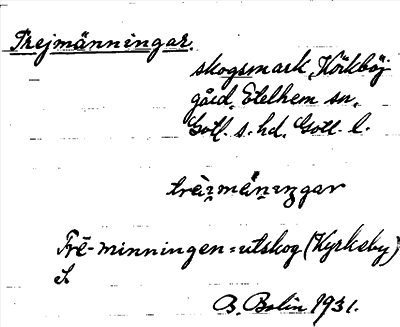 Trejmänningar.
skogsmark, Körkböj
gård, Etelhem sn,
Gotl. s. hd. Gotl. l.
trài̯mä́ni̯ŋgar
Trē-minningen = utskog (Kyrksby)
B. Bolin 1931.